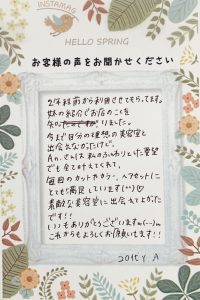 INSTAMAG
HELLO SPRING
お客様の声をお聞かせください
2年程前から利用させてもらってます。
妹の紹介でお店のことを
知りました。
今まで自分の理想の美容室と
出会えなかったけど、
An.さんは私のふわりとした要望
でも全て叶えてくれて、
毎回のカットやカラー、ヘアセットに
とても満足しています(^^)♡
素敵な美容室に出会えてよかった
です!!
いつもありがとうございますm(--)m
これからもよろしくお願いします!!
20代 Y.A